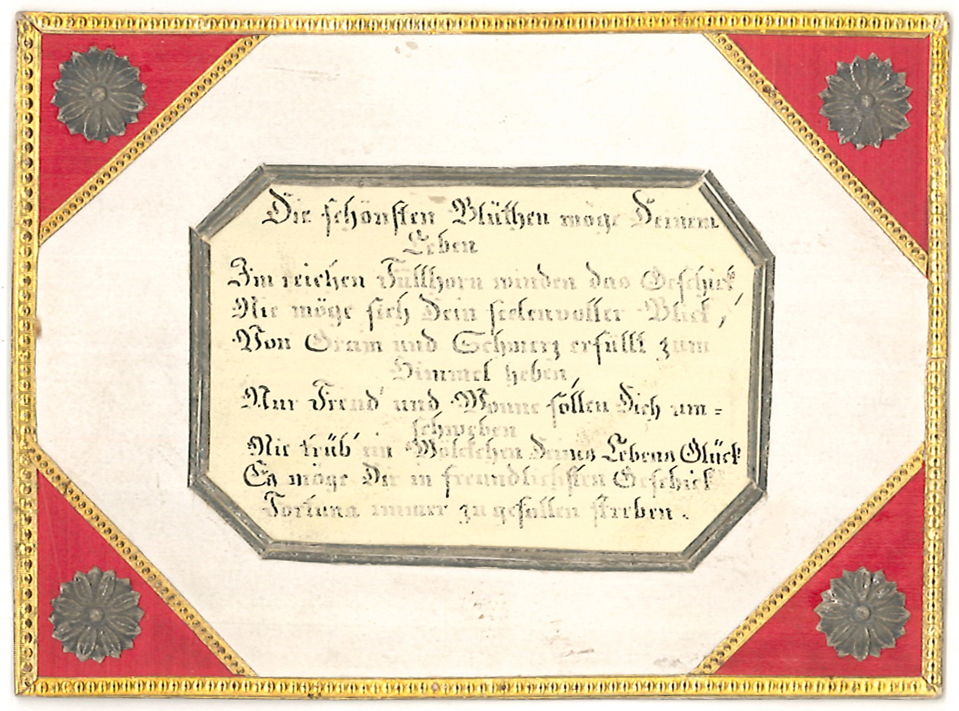 Die schönsten Blüthen möge Deinem
Leben
Im reichen Füllhorn winden das Geschick
Nie möge sich Dein seelenvoller Blick,
Von Gram und Schmerz erfüllt zum
Himmel heben,
Nur Freud' und Wonne sollen Dich um=
schweben
Nie trüb' ein Wölckchen Deines Lebens Glück
Es möge Dir in freundlichsten Geschick
Fortuna immer zu gefallen streben.